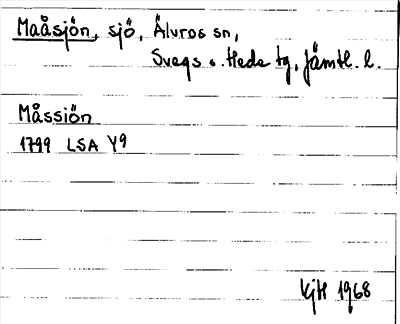 Maåsjön, sjö, Älvros sn,
Svegs o. Hede tg, Jämtl. l.
Måssiön
1799 LSA Y9
KjH 1968